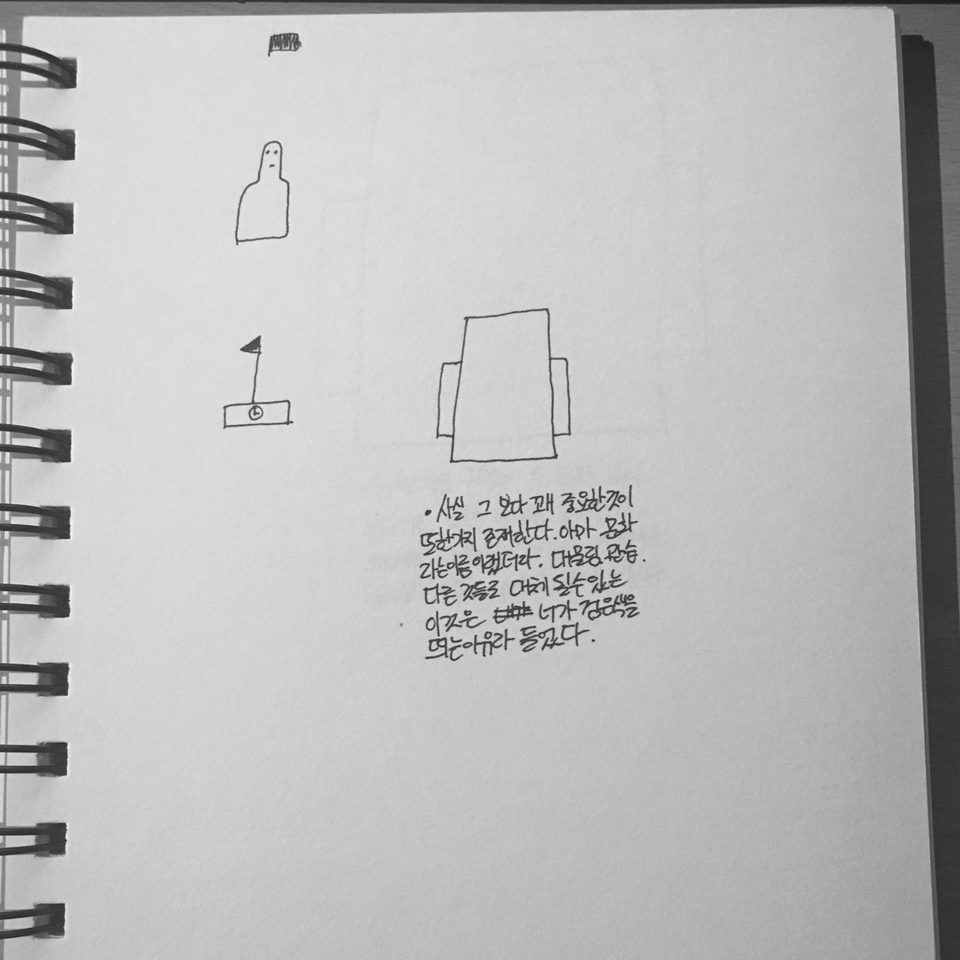 • 사실 그 보다 꽤 중요한것이
또한가지 존재한다. 아마 문화
라는이름이랬더라. 대물림, 관습.
다른 것들로 대체 될수있는
이것은 너가 검은색을
띄는이유라 들었다.